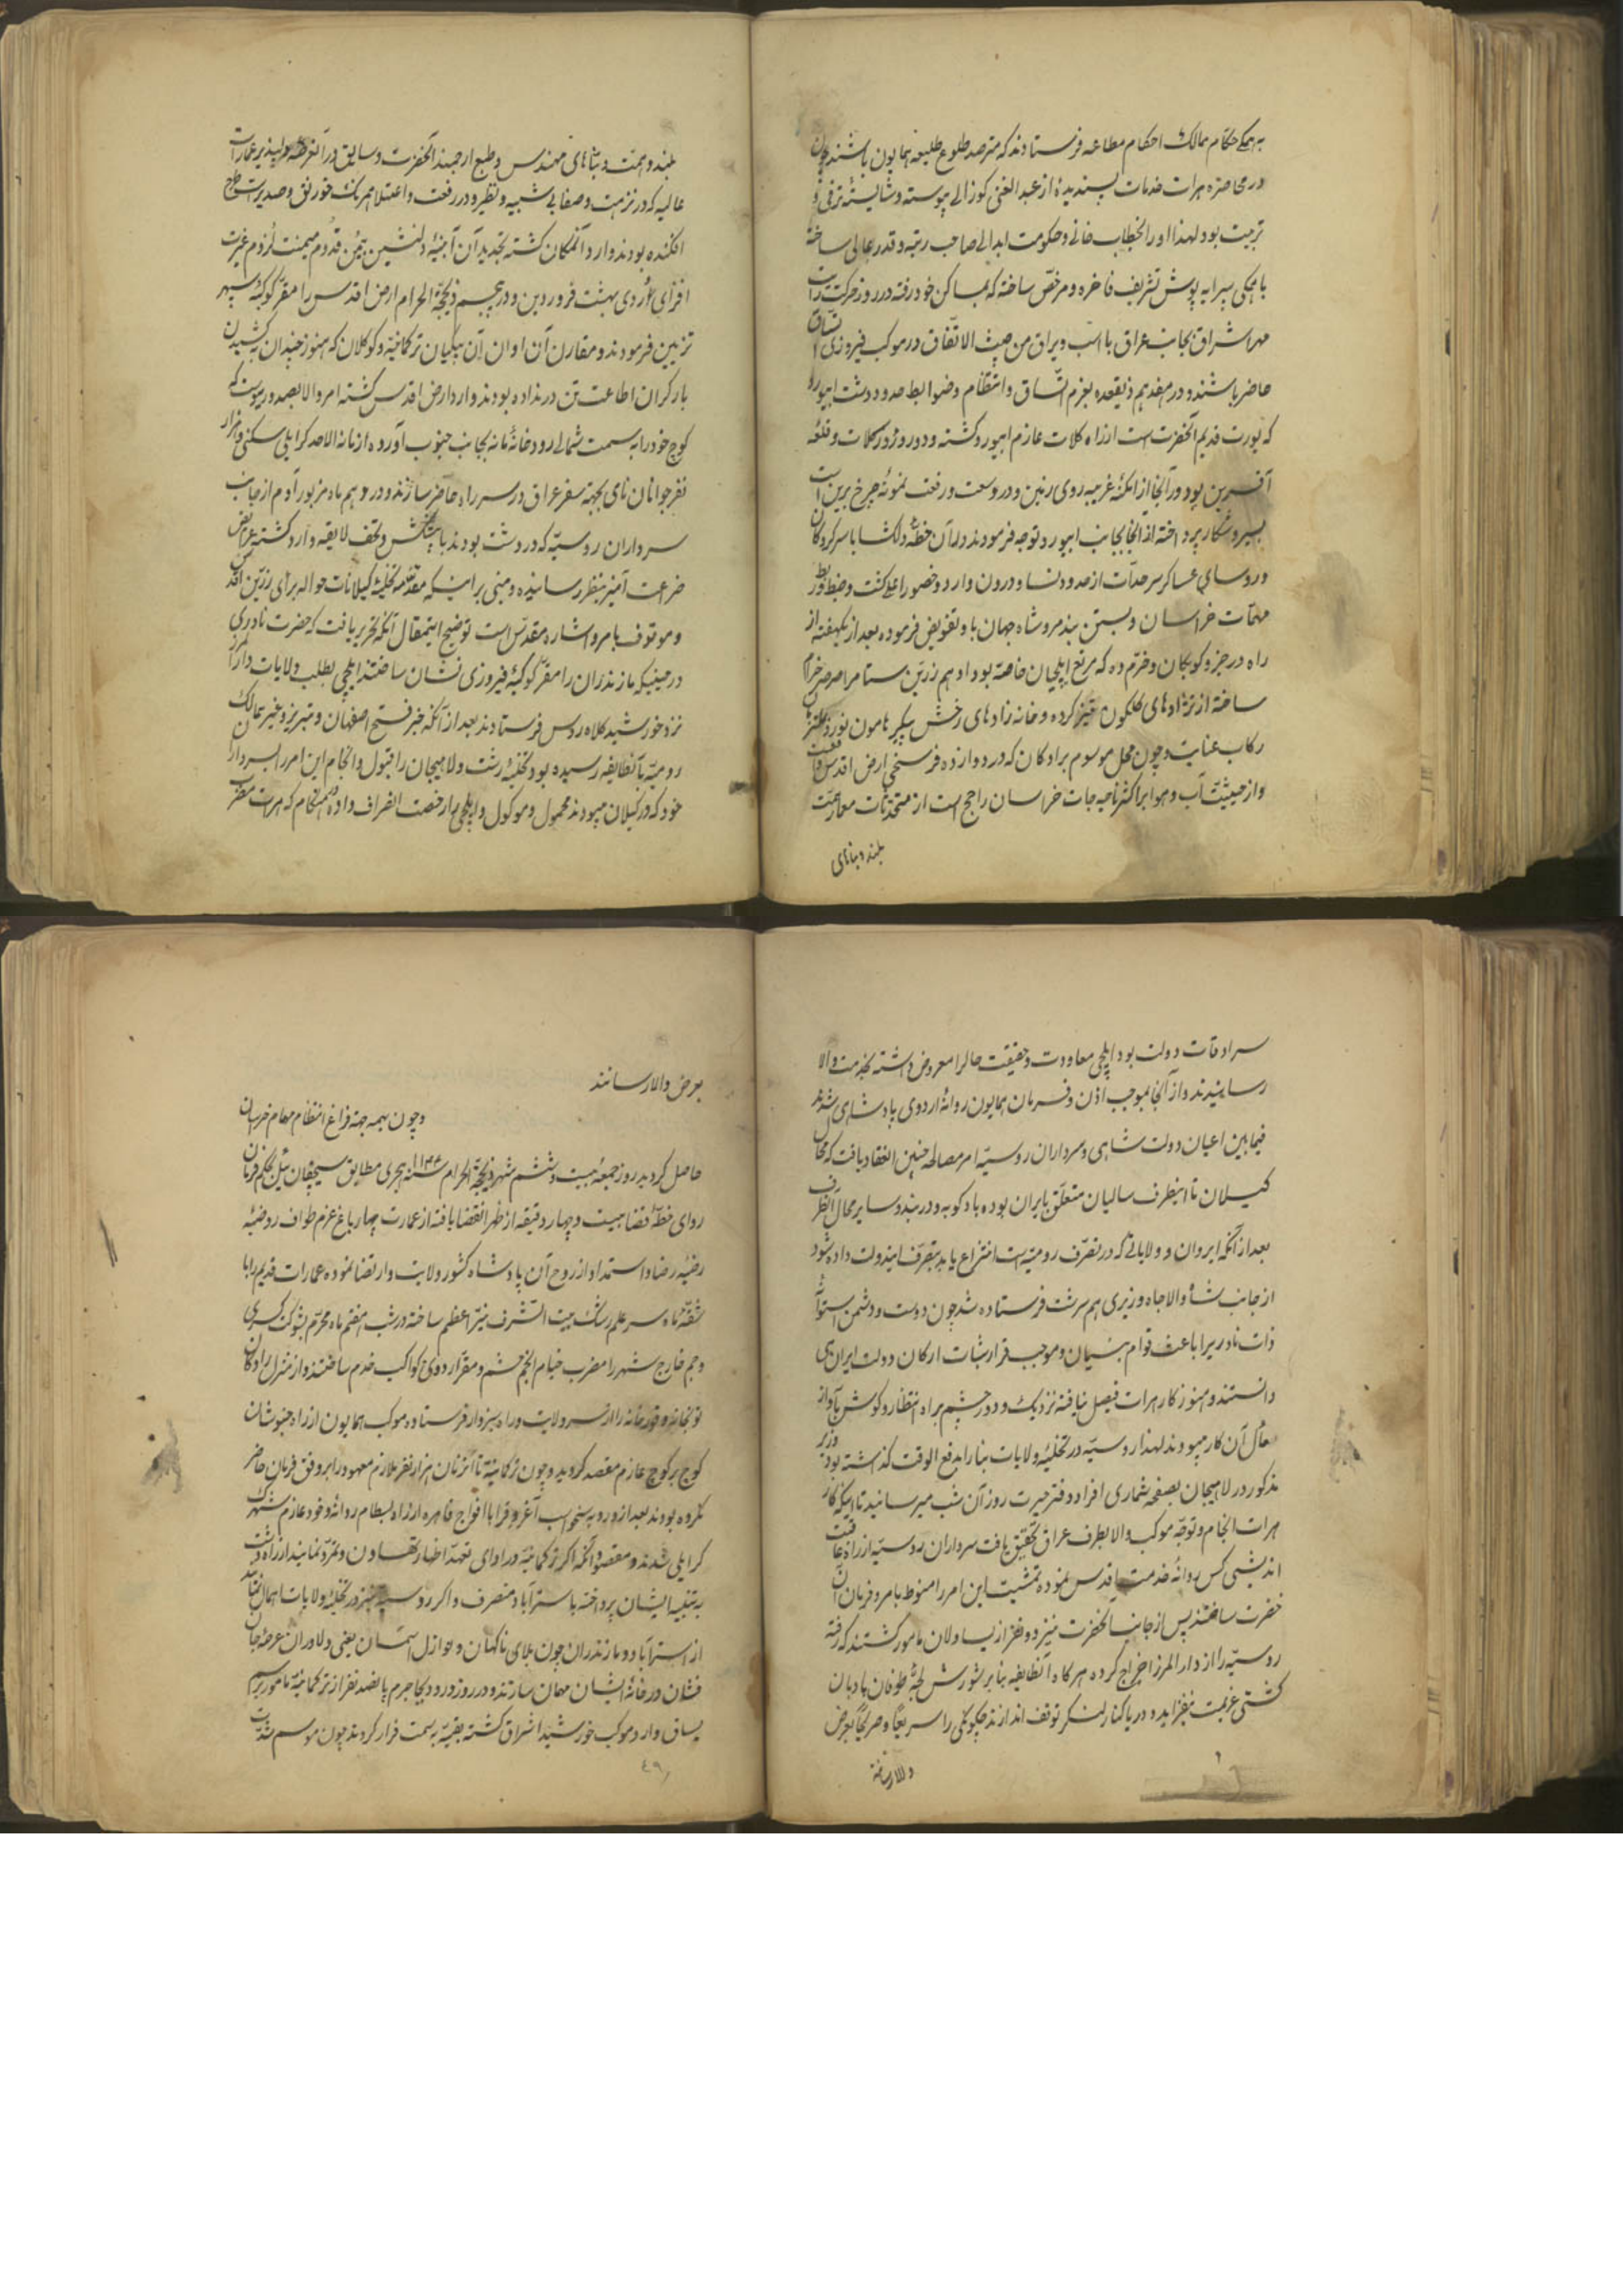 به همگی حکام ممالک احکام مطاعه فرستادند که مترصد طلوع طلیعه همایون باشند چون
در محاصره هرات خدمات پسندیده از عبدالغنی کوزالی پیوسته و شایسته ترقی و
تربیت بود لهذا او را بخطاب خانی و حکومت ابدالی صاحب رتبه و قدر عالی ساخته
با همگی سرا به پوش تشریف فاخره و مرخص ساخته که بمساکن خود رفته در روز حرکت رایت
مهر اشراق بجانب عراق با اسب و یراق من حیث الاتفاق در موکب فیروزی
حاضر باشند و در هفدهم ذیقعده بعزم اتساق و انتظام و ضوابط حدود دشت ابیورد
که یورت قدیم آنحضرت است از راه کلات عازم ابیورد گشته و دو روز در کلات و قلعه
آفرین بود و در آنجا از امکنه غریبه روی زمین و در وسعت و رفعت نمونه چرخ برین است
بسیر و شکار پرداخته از آنجا بجانب ابیورد توجه فرمودند در آن خطه دلگشا با سرکردگان
و روسای عساکر سرحدات از حدود نسا و درون وارد و حضور اعلی گشت و ضبط و ربط
مهمات خراسان و بستن بند مرو شاه جهان باو تفویض فرموده بعد از یکهفته از
راه درجز و کوبکان و خرم ده که مرتع ایلچیان خاصه بود ادهم زرین ستام را صرصر خرام
ساخته از نژادهای گلگون قیز کرده و خانه زادهای رخش پیکر هامون نورد
رکاب عنایت و چون محل موسوم برادکان که در دوازده فرسخی ارض اقدس واقعست
و از حیثیت آب و هوا بر اکثر ناحیه جات خراسان راجح است از متحدثات معمار همت
بلند و بناهای
بلند و همت و بناهای مهندس و طبع ارجمند آنحضرت و سابق در آنعرصه دلپذیر عمارات
عالیه که در نزهت و صفا بی شبیه و نظیر و در رفعت و اعتلا همرنگ خورنق و سدیر است طرح
افکنده بودند وارد آنمکان گشته بتجدید آن ابنیه دلنشین بیمن قدوم میمنت لزوم غیرت
افزای اردی بهشت فروردین و در پنجم ذیحجة الحرام ارض اقدس را مقر کوکبه سپهر
تزیین فرمودند و مقارن آن اوان آن بیکیان ترکمانیه و کوکلان که هنوز چندان به کشیدن
بار گران اطاعت تن در نداده بودند وارد ارض اقدس گشته امر والا بصدور پیوست که
کوچ خود را به سمت شمالی رودخانه مانه بجانب جنوب آورده از مانه الاحد کرایلی سکنی و هزار
نفر جوانان نامی بجهته سفر عراق در سر راه حاضر سازند و در دهم ماه مزبور آدم از جانب
سرداران روسیه که در رشت بودند با پیشکش و تحف لایقه وارد گشته عرایض
ضراعت آمیز بنظر رسانیده و مبنی بر اینکه مقدمه تخلیه گیلانات حواله برای رزین اقدس
و موقوف بامر و اشاره مقدس است توضیح اینمقال آنکه تحریر یافت که حضرت نادری
در حینیکه مازندران را مقر کوکبه فیروزی نشان ساختند ایلچی بطلب ولایات دارالمرز
نزد خورشید کلاه روس فرستادند بعد از آنکه خبر فتح اصفهان و تبریز و غیر ممالک
رومیه بآنطایفه رسیده بود تخلیه رشت و لاهیجان را قبول و انجام این امر را بسردار
خود که در گیلان میبودند محمول و موکول و ایلچی را رخصت انصراف داده هنگام که هرات مضرب
سرادقات دولت بود ایلچی معاودت و حقیقت حال را معروض داشته بخدمت والا
رسانیدند و از آنجا بموجب اذن و فرمان همایون روانه اردوی پادشاهی شدند
فیما بین اعیان دولت شاهی و سرداران روسیه امر مصالحه چنین انعقاد یافت که محال
گیلان تا اینطرف سالیان متعلق بایران بوده بادکوبه و دربند و سایر محال آنطرف
بعد از آنکه ایروان و ولایاتی که در تصرف رومیه است انتزاع یابد بتصرف ایندولت داده شود
از جانب شاه والاجاه وزیری هم برشت فرستاده شد چون دوست و دشمن استوای
ذات نادری را باعث قوام بنیان و موجب قرار ثبات ارکان دولت ایران می
دانستند و هنوز کار هرات فیصل نیافته نزدیک و دور چشم براه انتظار و گوش بآواز
مآل آن کار میبودند لهذا روسیه در تخلیه ولایات بنا را بدفع الوقت گذاشته بود وزیر
مذکور در لاهیجان بصفحه شماری افراد دفتر حیرت روز آن شب میرسانید تا اینکه کار
هرات انجام و توجه موکب والا بطرف عراق تحقیق یافت سرداران روسیه از راه عاقبت
اندیشی کس روانه خدمت اقدس نموده تمشیت این امر را منوط بامر و فرمان آن
حضرت ساختند پس از جانب آنحضرت نیز دو نفر از یساولان مامور گشتند که رفته
روسیه را از دارالمرز اخراج کرده هرگاه آنطایفه بنا بر شورش لجه طوفان بادبان
کشتی عزیمت نیفرازیده و در بکنار لنگر توقف اندازند چگونگی را سریعا و صریحا بعرض
والا رسانند
بعرض والا رسانند
و چون بهمه جهة فراغ انتظام مهام خراسان
حاصل گردید روز جمعه بیست و ششم شهر ذیحجة الحرام سنه ۱۱۴۴ هجری مطابق سیچقان ئیل بحکم فرمان
روای خطه قضا بیست و چهار دقیقه از ظهر انقضا یافته از عمارت چهار باغ عزم طواف روضه
رضیه رضا و استمداد از روح آن پادشاه کشور ولایت و ارتضا نموده عمارات قدیم را با
شقه ماه سر علم رشک بیت الشرف نیر اعظم ساخته در شب هفتم ماه محرم بشوکت کسری
و جم خارج شهر را مضرب خیام انجم حشم و مقر اردوی کواکب خدم ساختند و از منزل رادکان
توپخانه و قورخانه را از سر ولایت و راه سبزوار فرستاده موکب همایون از راه خبوشان
کوچ بر کوچ عازم مقصد گردید و چون ترکمانیه تا آنزمان هزار نفر ملازم معهود را بر وفق فرمان حاضر
نکرده بودند بعد از ورود به سنخواست آغروق را با افواج قاهره از راه بسطام روانه و خود عازم سملقان
کرایلی شدند و مقصود آنکه اگر ترکمانیه در ادای تعهد اظهار تهاون و تمرد نمایند از راه دشت
به تنبیه ایشان پرداخته باستراباد منصرف و اگر روسیه نیز در تخلیه ولایات اهمال نمایند
از استراباد و مازندران چون بلای ناگهان و نوازل آسمان یعنی دلاوران عرصه جان
فشان در خانه ایشان مهمان سازند و در روز ورود بجاجرم پانصد نفر از ترکمانیه مامور برسم
یساق وارد موکب خورشید اشراق گشته بقیه به سمت فرار کردند چون موسم شدت
٤٩